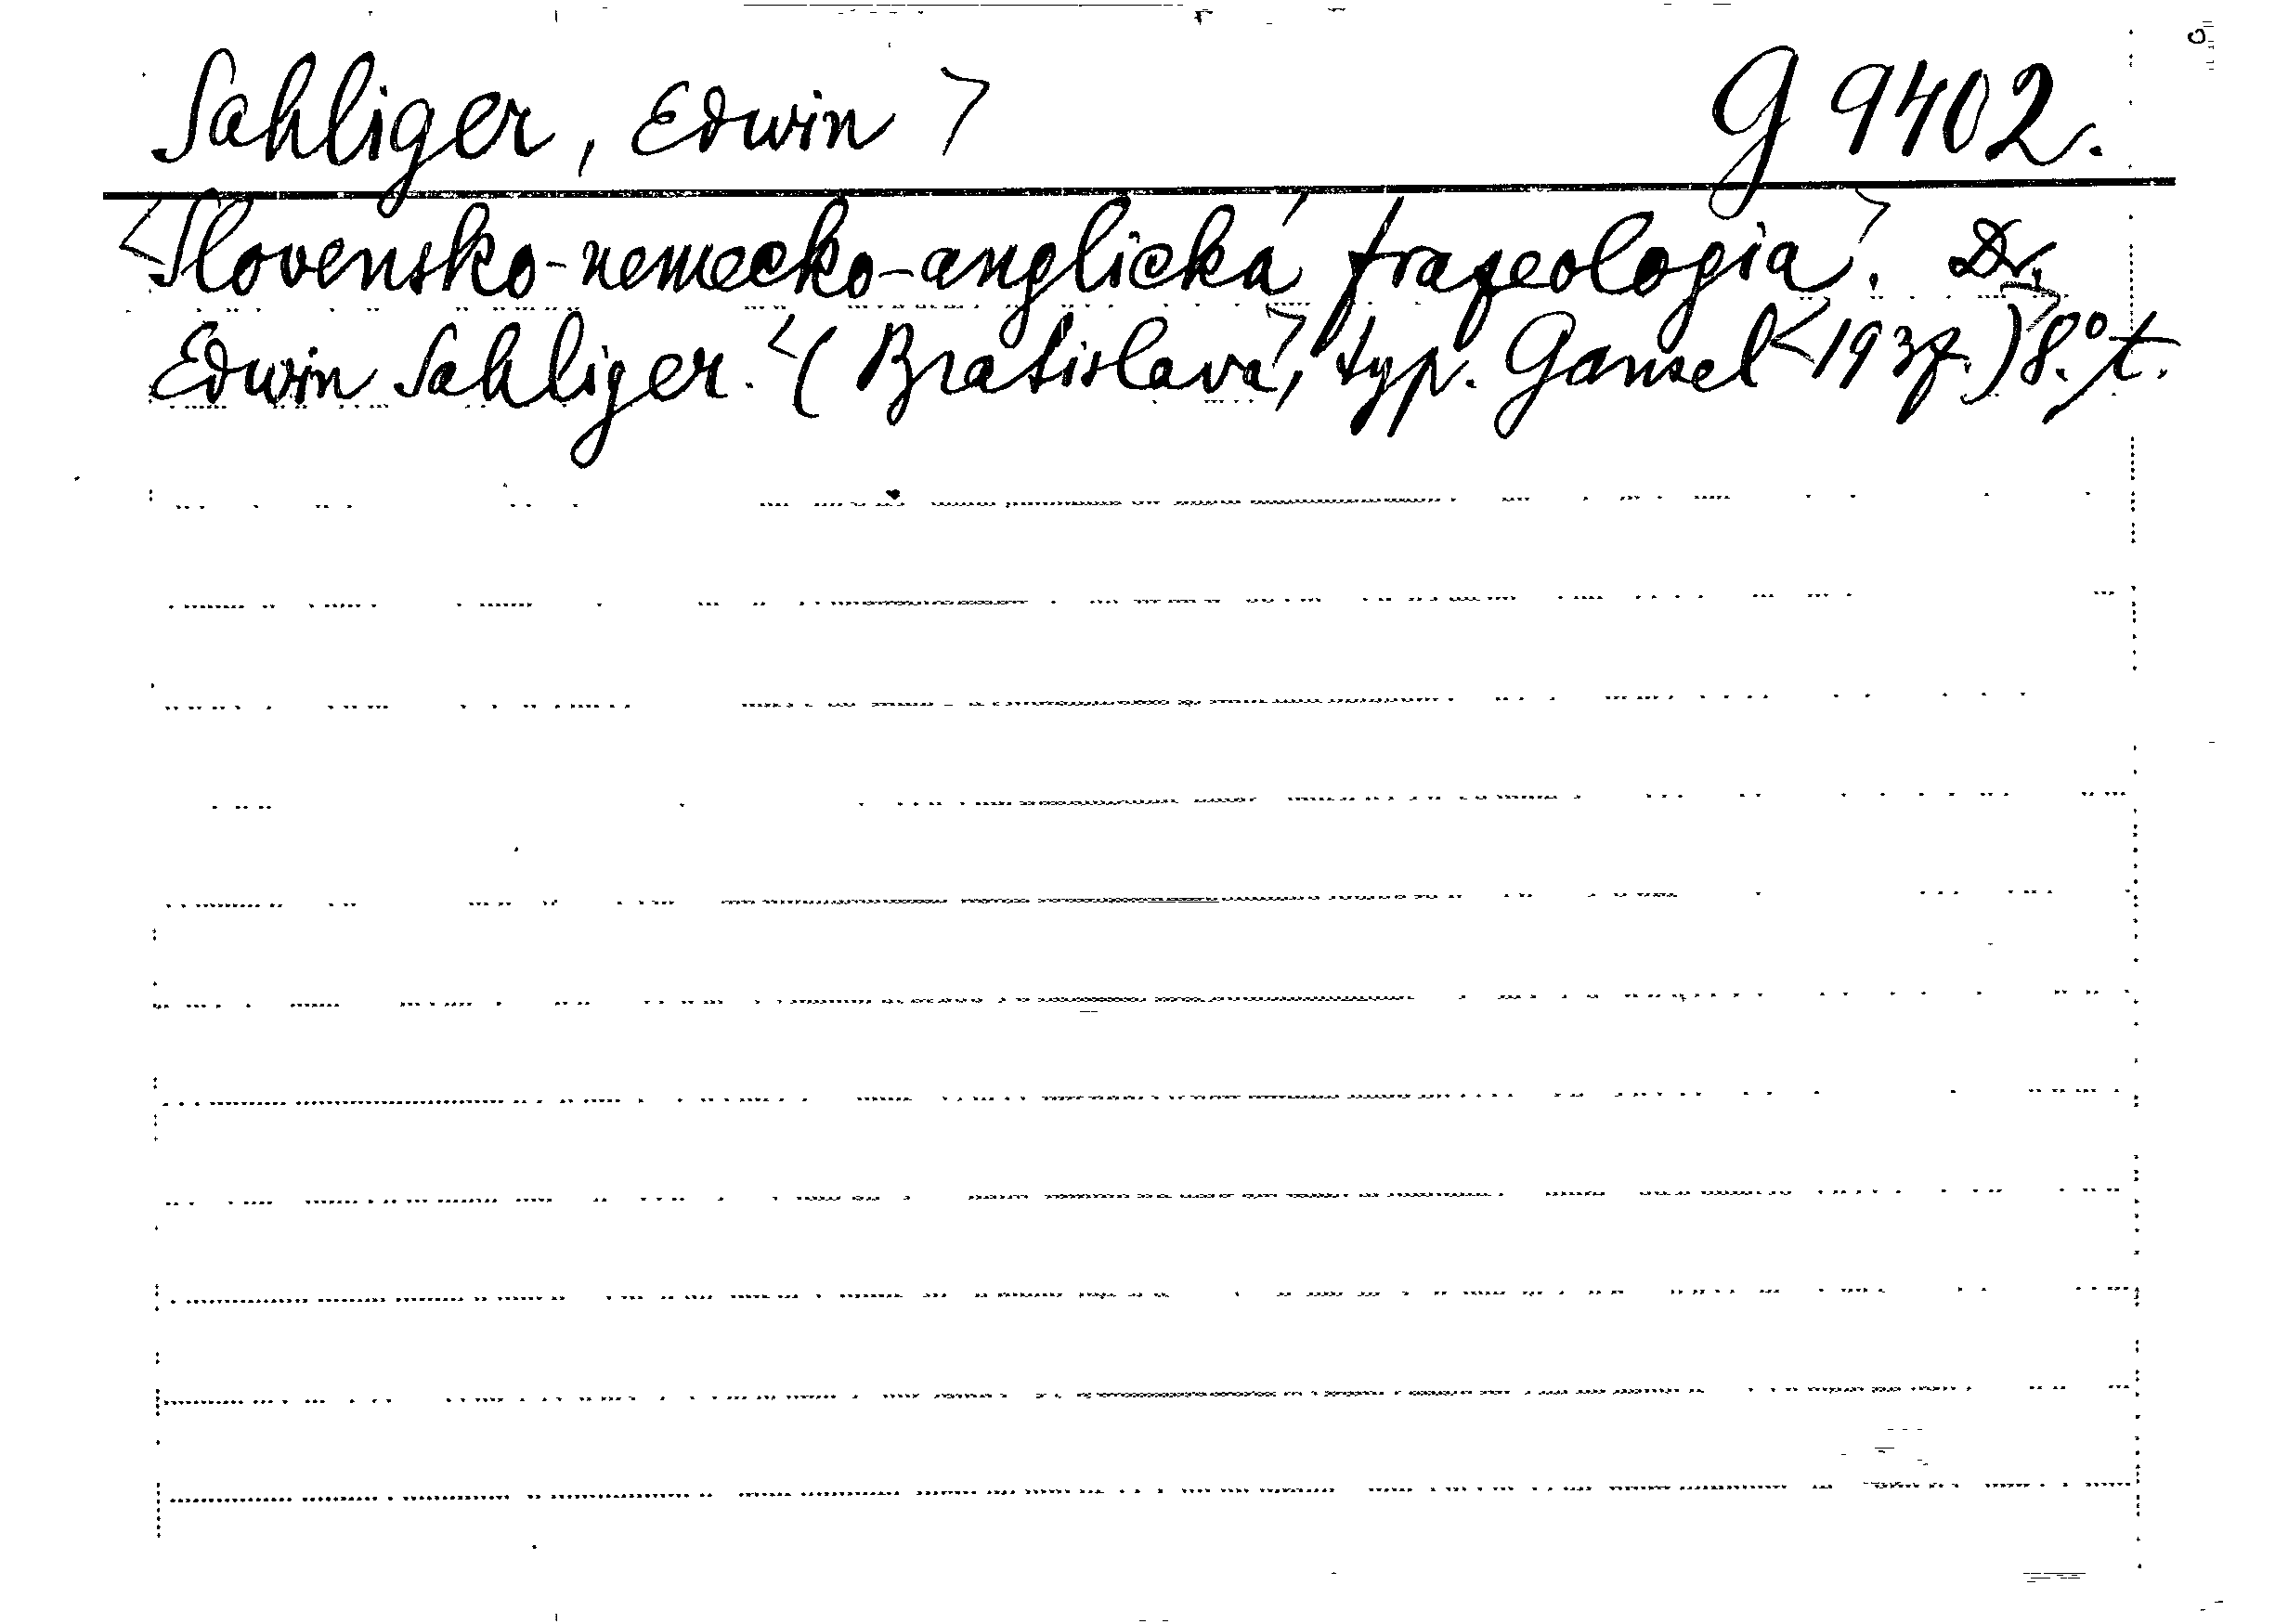 Sahliger, Edwin > G 9402.
<Slovensko-nemecko-anglická frazeologia>. Dr.
Edwin Sahliger. <(Bratislava>, typ. Gansel <1937.)> 8.° t.